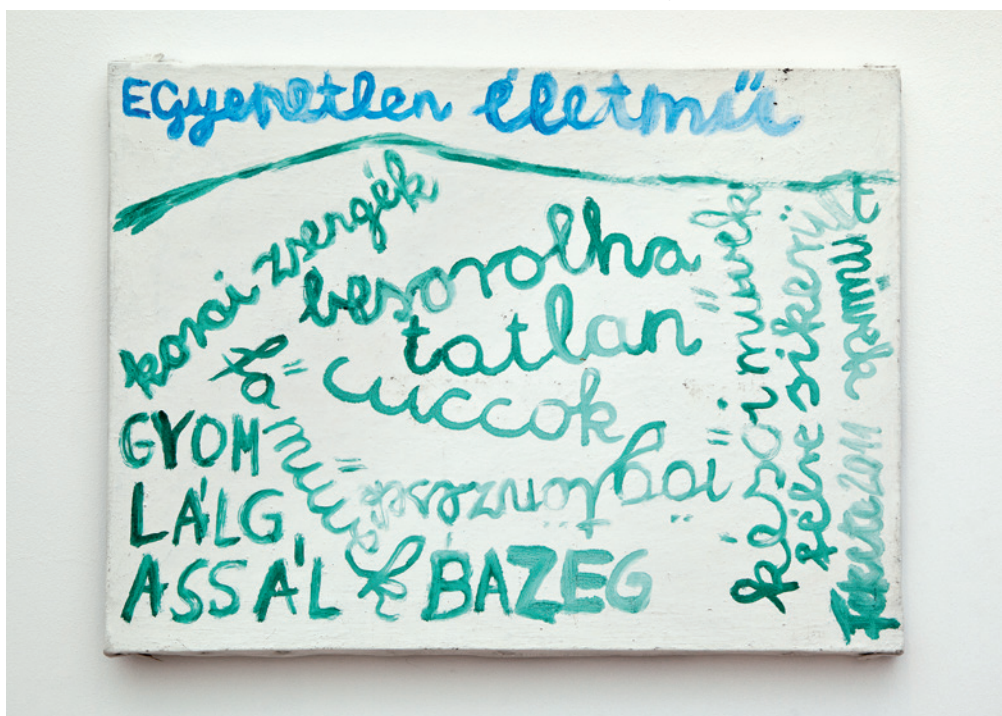 EGyenetlen életmű
korai zsengék
besorolha
tatlan
cuccok
fő művek
GYOM
LÁLG
ASSÁL BAZEG
késői művek
félre sikerü
2011